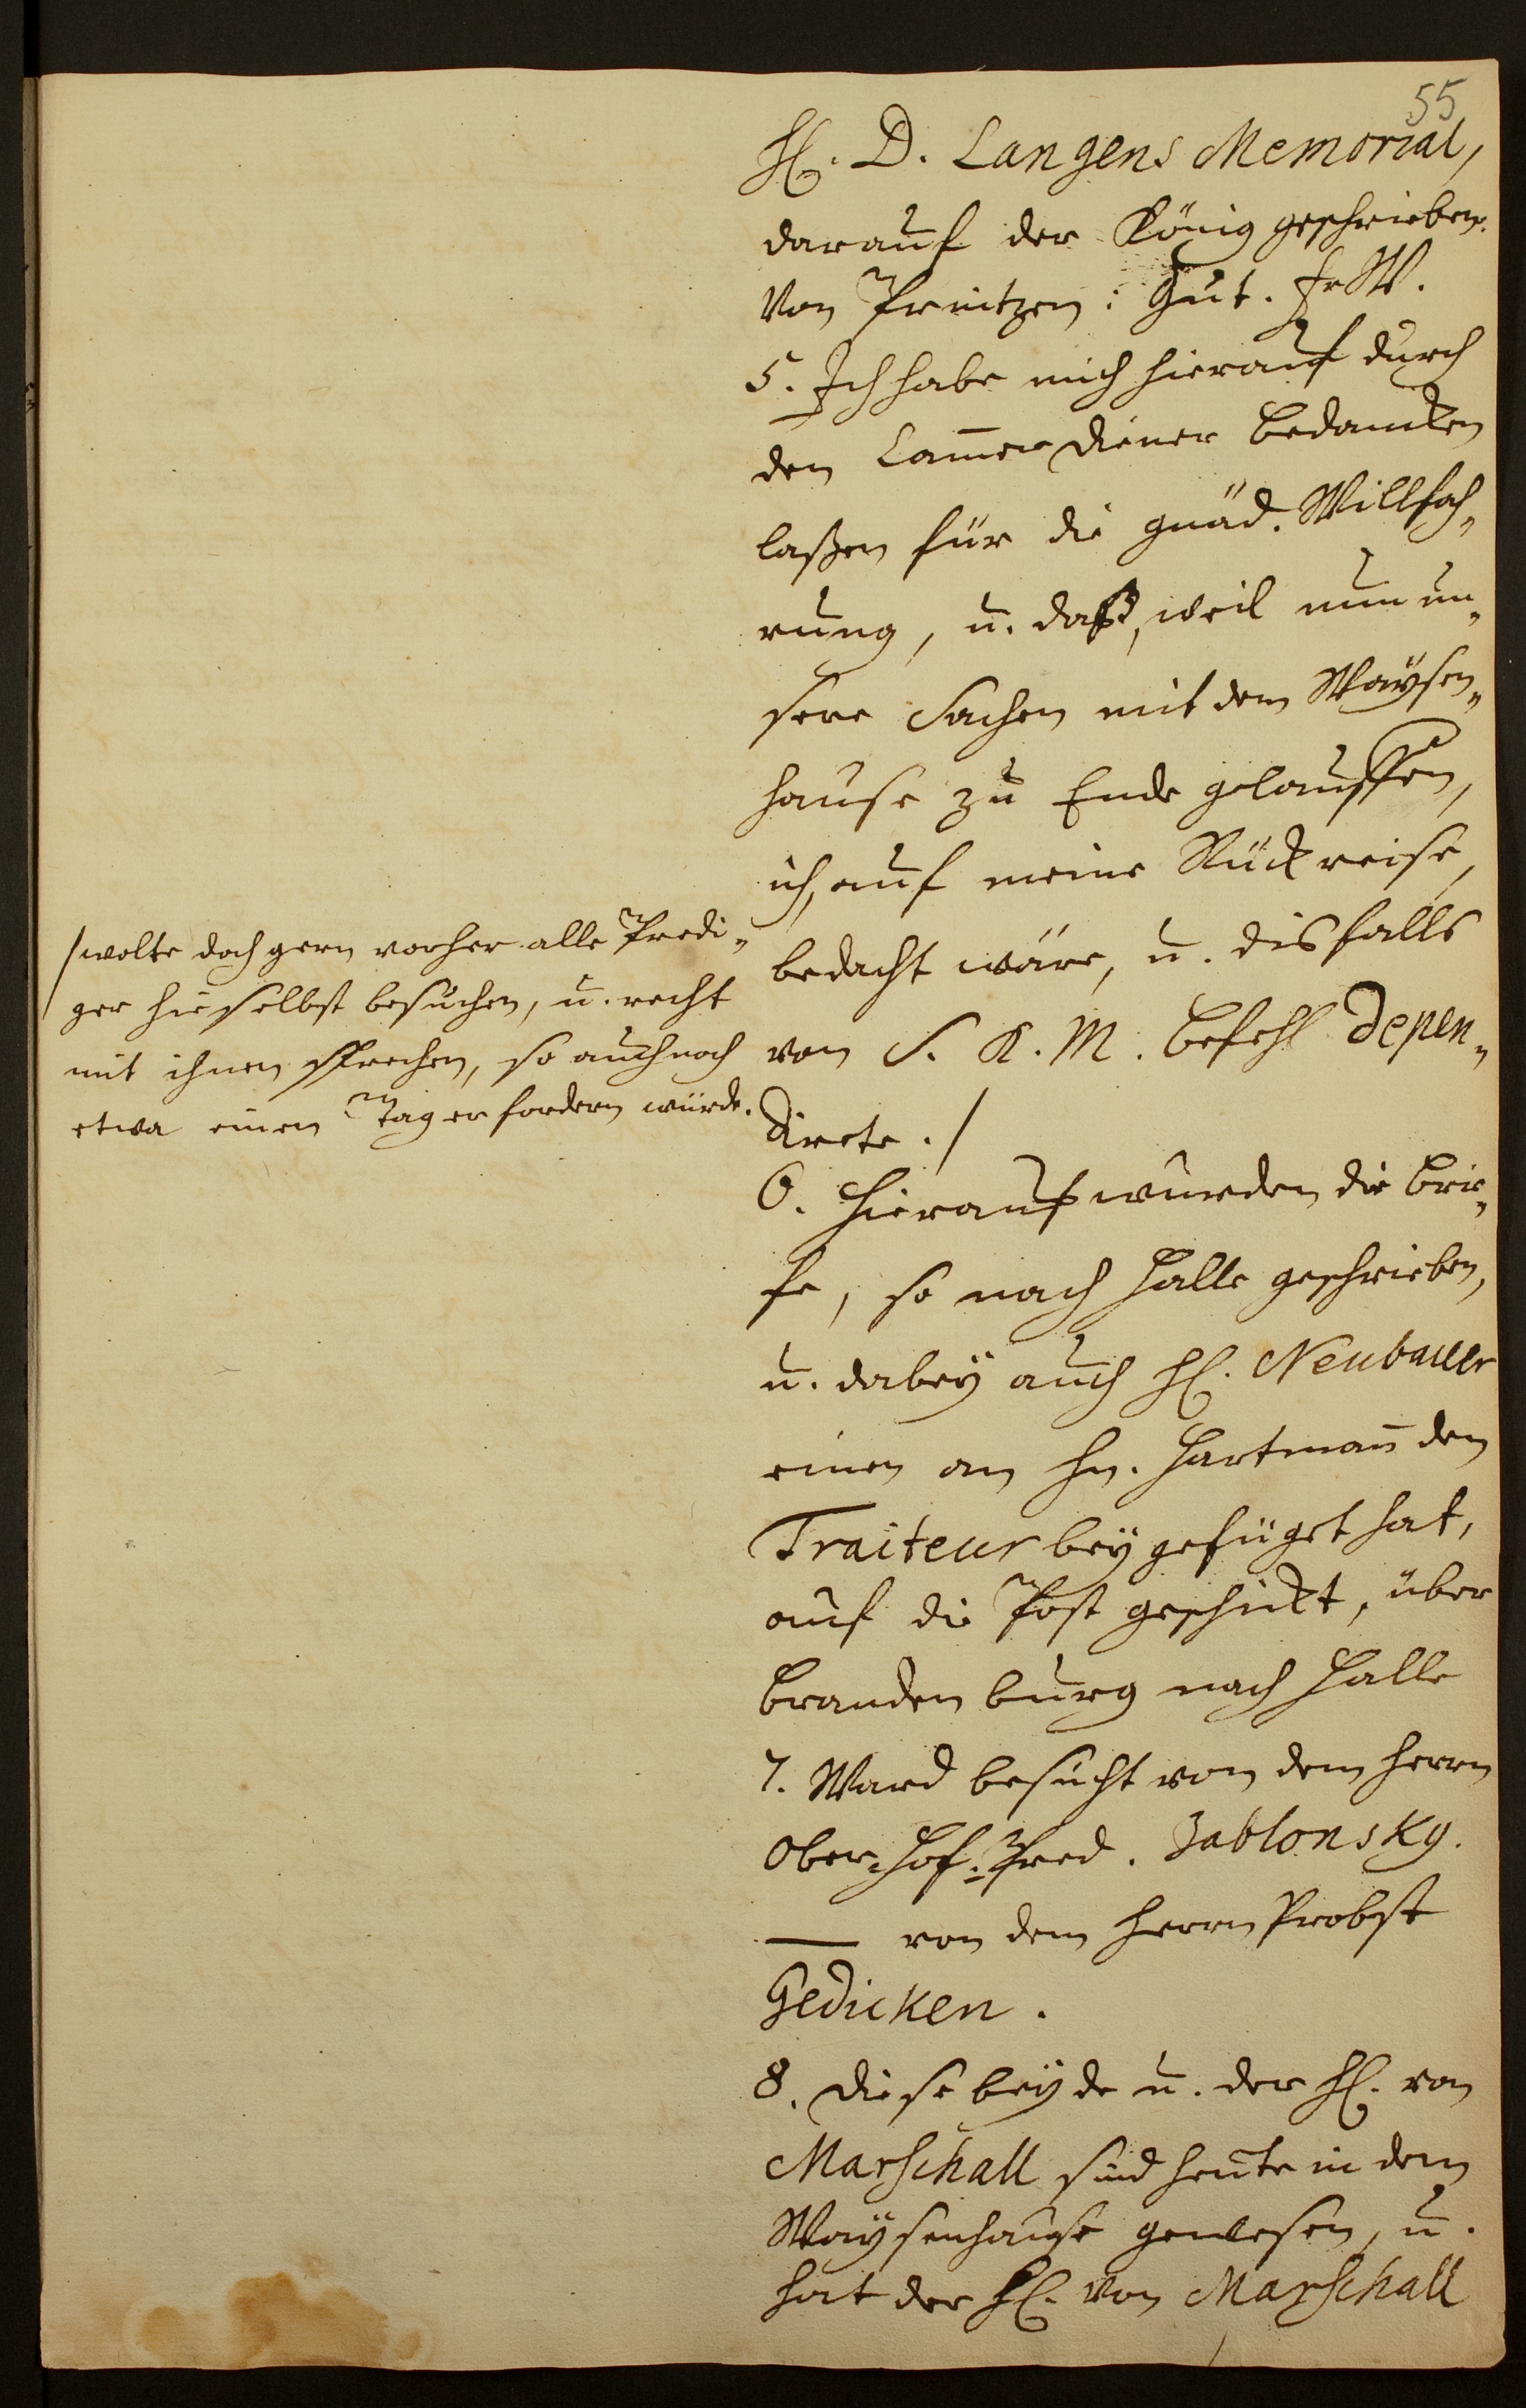 55
H. D. Langens Memorial,
darauf der König geschrieben.
Von Printzen: Gut. Fr W.
5. Ich habe mich hierauf durch
den Cam̄erdiener bedancken
laßen für die gnäd. Willfah„
rung, u. daß, weil nun un„
sere Sachen mit dem Waÿsen„
hause zu Ende gelauffen,
ich, auf meine Rückreise,
bedacht wäre, u. disfalls
von S. K. M. Befehl depen„
direte. /
/ wolte doch gern vorher alle Predi„
ger hieselbst besuchen, u. recht
mit ihnen sprechen, so auch noch
etwa einen Tag erfordern würde.
6. Hierauf wurden die Brie„
fe, so nach Halle geschrieben,
u. dabeÿ auch H. Neubauer
einen an Hn. Hartman̄ den
Traiteur beÿgefüget hat,
auf die Post geschickt, über
Brandenburg nach Halle
7. Ward besucht von dem Herrn
Ober-Hof-Pred. Jablonsky.
— von dem Herrn Probst
Gedicken.
8. Diese beÿde u. der H. von
Marschall sind heute in dem
Waÿsenhause gewesen, u.
hat der H. von Marschall